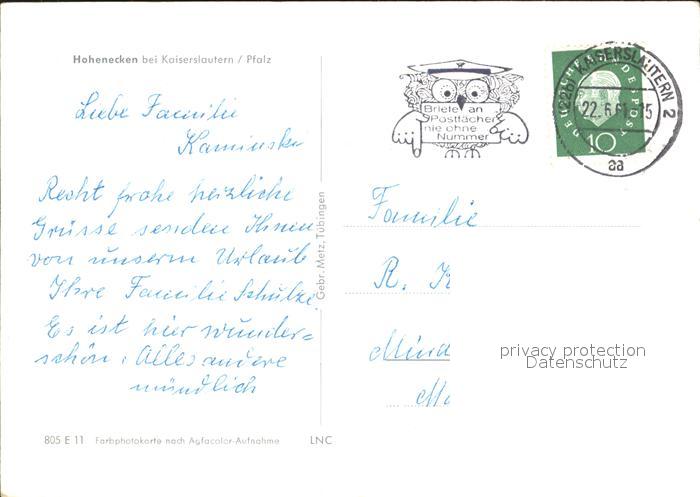 Hohenecken bei Kaiserslautern / Pfalz
Liebe Familie
Kaminske
Recht frohe herzliche
Grüsse senden Ihnen
von unserm Urlaub
Ihre Familie Schulze.
Es ist hier wunder=
schön. Alles andere
mündlich
805 E 11 Farbphotokarte nach Agfacolor-Aufnahme LNC
Gebr. Metz, Tübingen
Briefe an
Postfächer
nie ohne
Nummer
DEUTSCHE BUNDESPOST
10
KAISERSLAUTERN 2
22.6.61
aa
Familie
R. K
Mind
privacy protection
Datenschutz